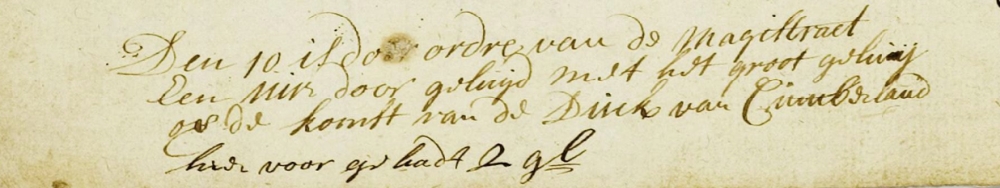 Den 10 is door ordre van de Magistraet
Een uur door geluijd met het groot geluij
op de komst van de Duck van Cumberland
hier voor gehadt 2 gl